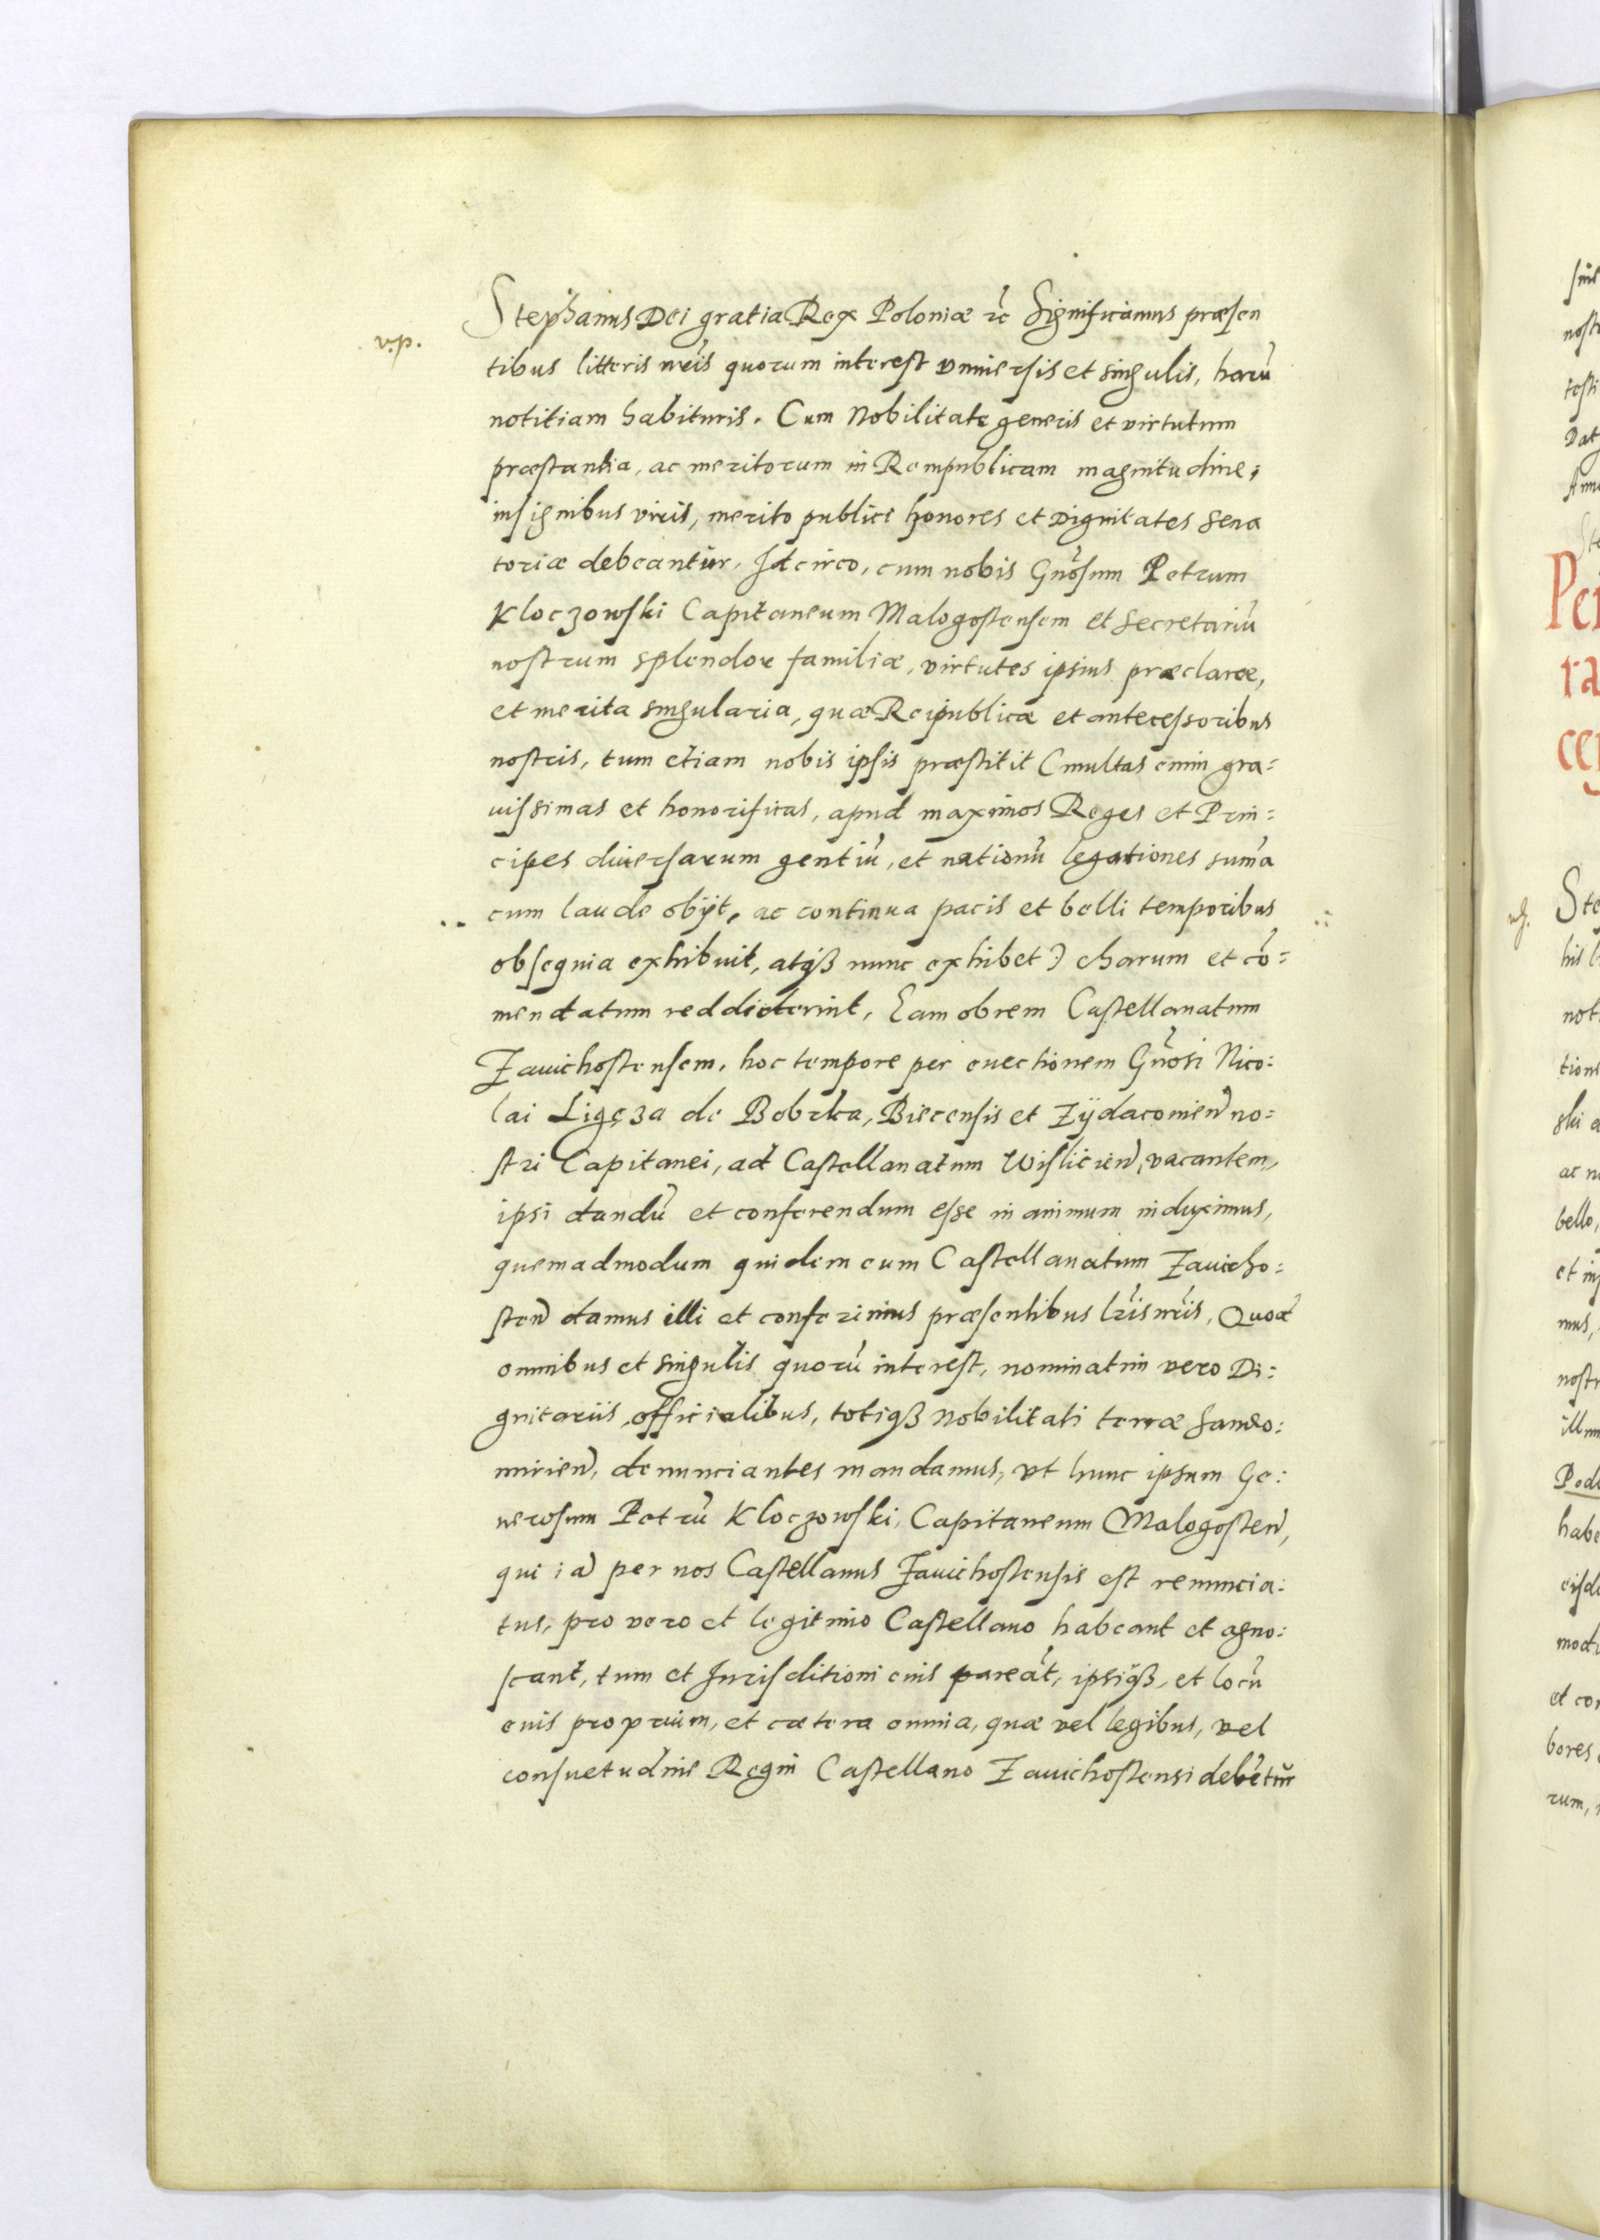 Stephanus Dei gratia Rex Poloniæ etc Significamus præsen
v.p.
tibus litteris nr̃is quorum interest vniuersis et singulis, harũ
notitiam habituris. Cum Nobilitate generis et virtutum
præstantia, ac meritorum in Rempublicam magnitudine,
insignibus viris, merito publici honores et Dignitates Sena
toriæ debeantur, Idcirco, cum nobis Gñosum Petrum
Kloczowski Capitaneum Malogostensem et Secretariũ
nostrum splendor familiæ, virtutes ipsius præclaræ,
et merita singularia, quæ Reipublicæ et antecessoribus
nostris, tum etiam nobis ipsis præstitit (multas enim gra=
uissimas et honorificas, apud maximos Reges et Prin=
cipes diuersarum gentiũ, et nationũ legationes sum̃a
cum laude obijt, ac continua pacis et belli temporibus
obsequia exhibuit, atqȝ nunc exhibet) charum et cõ=
mendatum reddiderint, Eam obrem Castellanatum
Zauichostensem, hoc tempore per euectionem Gñosi Nico=
lai Ligęza de Bobrka, Biecensis et Zijdaconieñ no=
stri Capitanei, ad Castellanatum Wislicieñ, vacantem,
ipsi dandũ et conferendum esse in animum induximus,
quemadmodum quidem eum Castellanatum Zauicho=
steñ damus illi et conferimus præsentibus lr̃is nr̃is, Quod
omnibus et singulis quorũ interest, nominatim vero Di=
gnitariis, officialibus, totiqȝ Nobilitati terræ Sando=
mirieñ, denunciantes mandamus, vt hunc ipsum Ge=
nerosum Petrũ Kloczowski, Capitaneum Malogosteñ,
qui iã per nos Castellanus Zauichostensis est renuncia=
tus, pro vero et legitimo Castellano habeant et agno=
scant, tum et Jurisditioni euis pareãt, ipsiqȝ, et locũ
euis proprium, et cætera omnia, quæ vel legibus, vel
consuetudine Regni Castellano Zauichostensi debẽtur